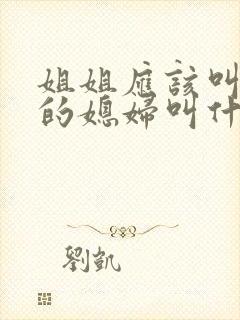 姐姐應該叫
的媳婦叫什
劉凱